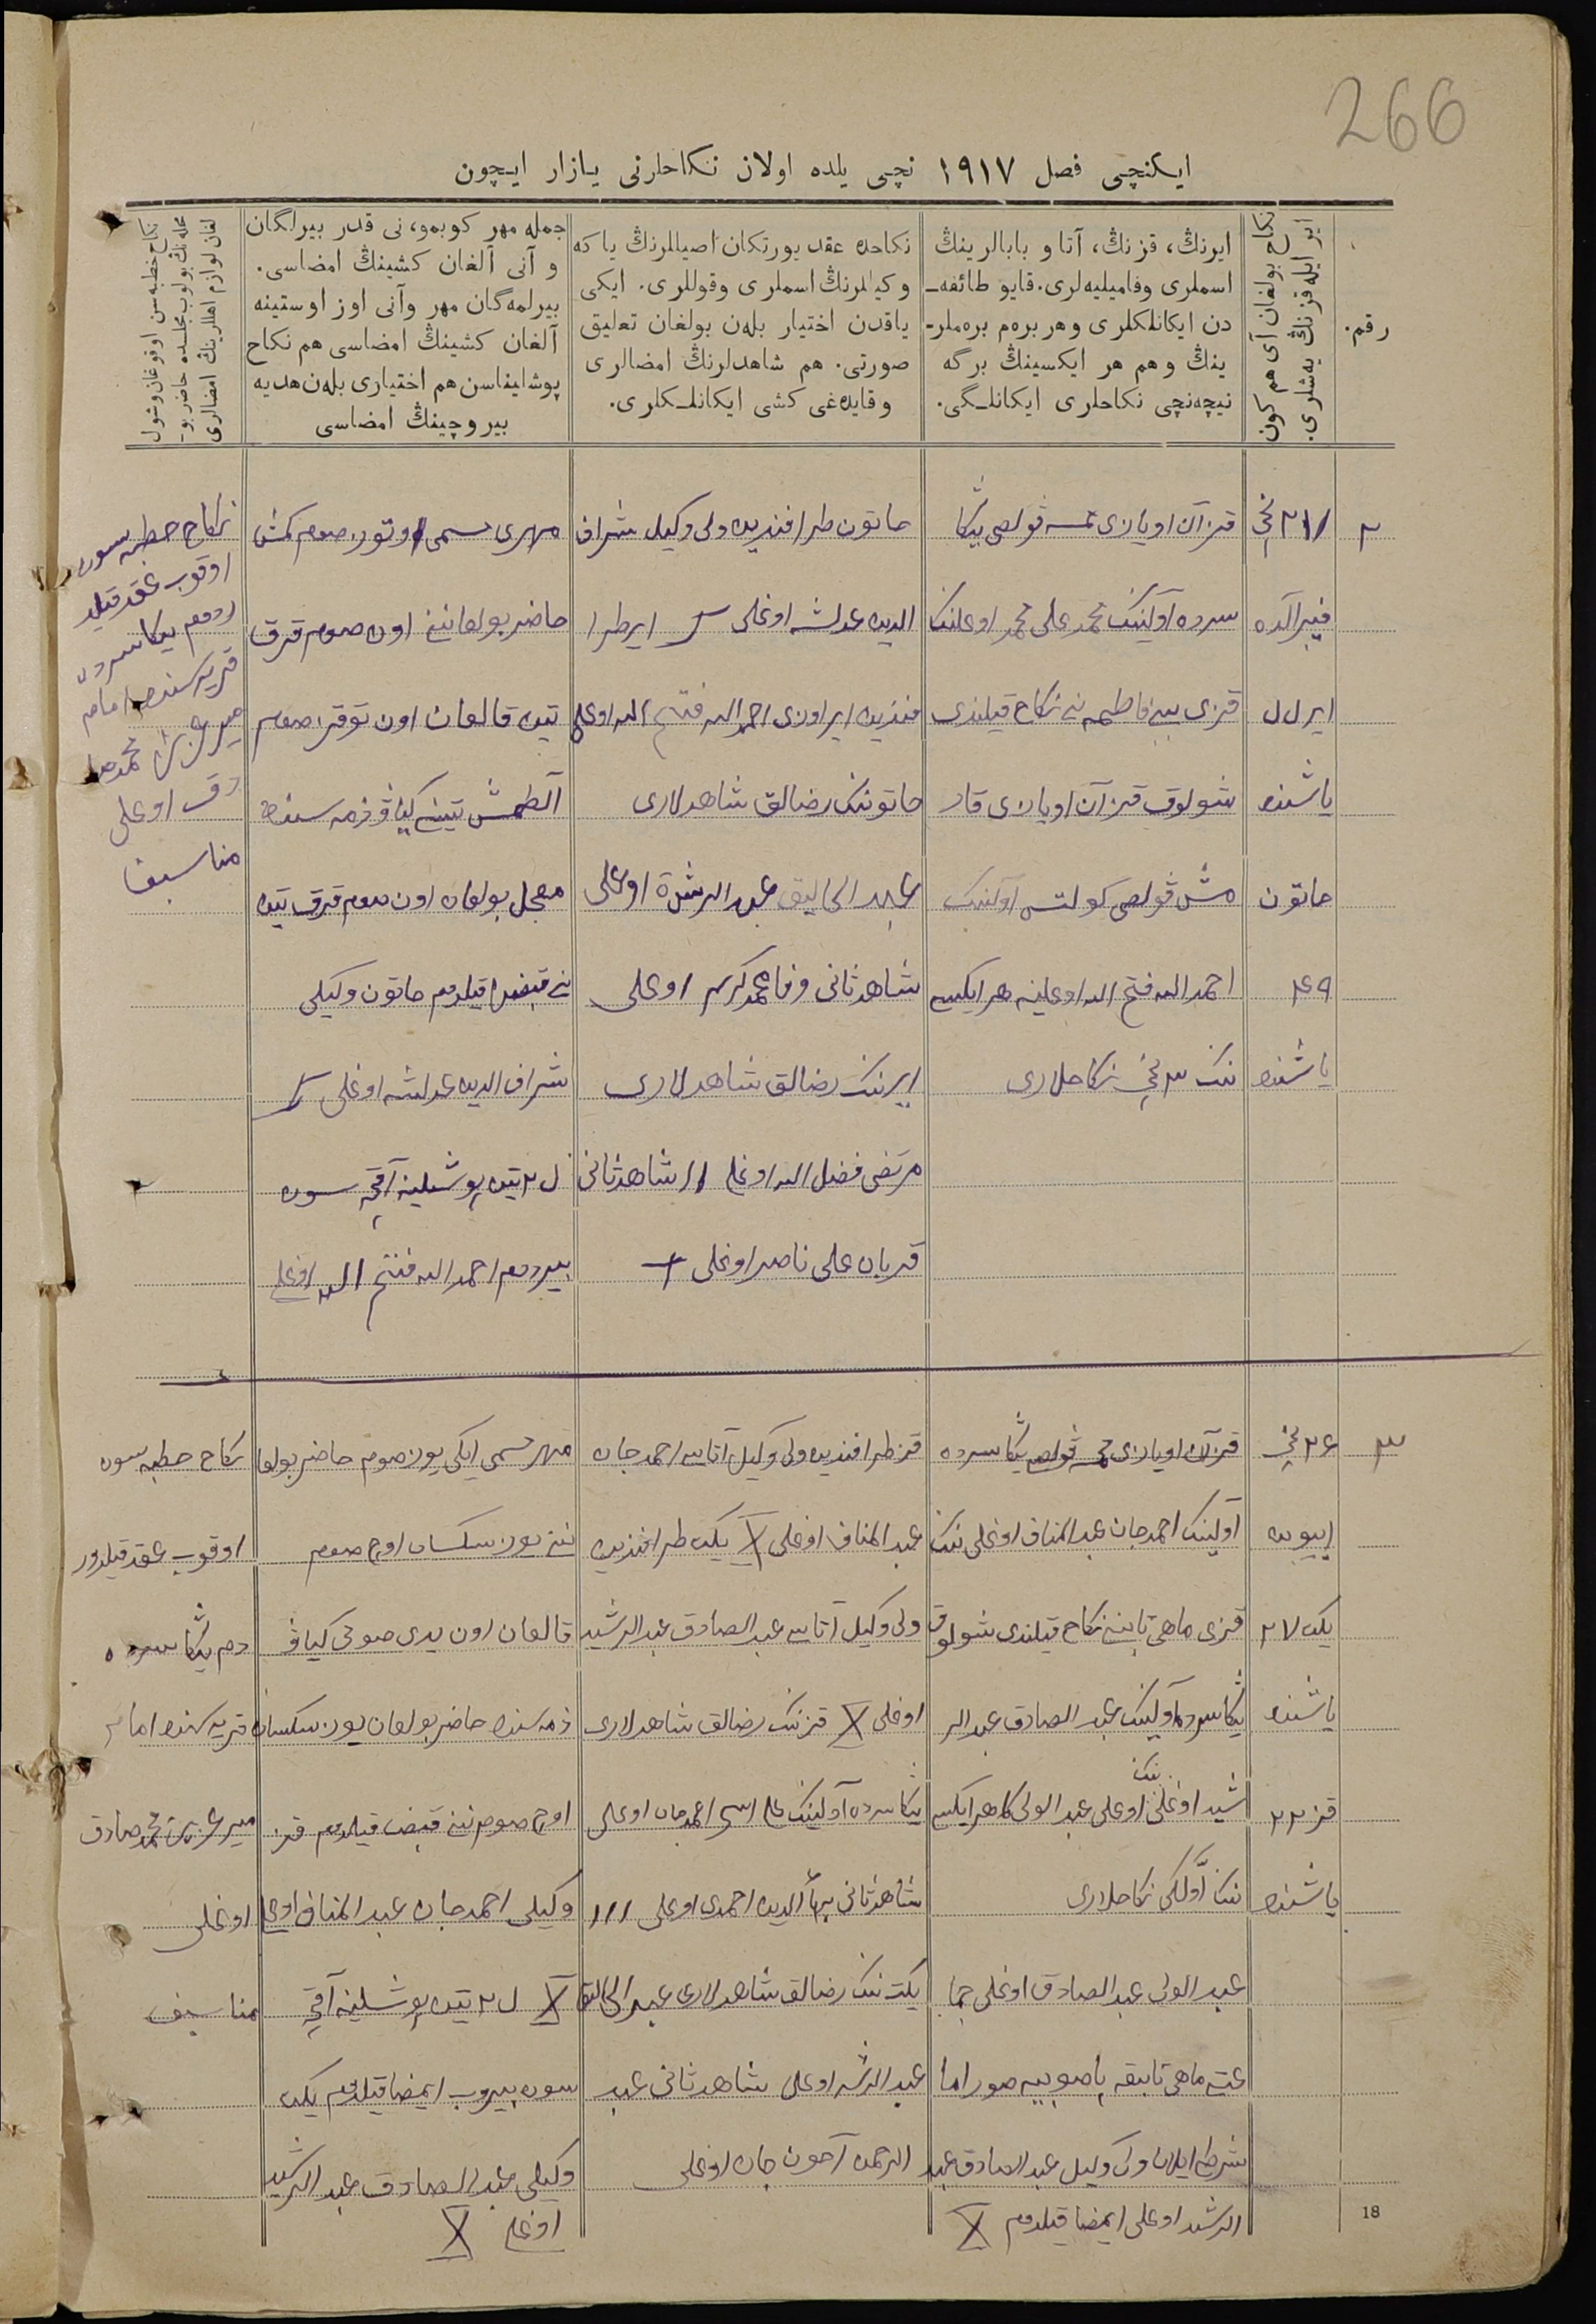 266
ایكنچی فصل ۱۹۱۷ نچی یلده اولان نكاحلرنی یازار ایچون
رقم.
نكاح بولغان آی هم كون
ایر ایله قزنڭ یه شلری.
ایرنڭ، قزنڭ، آتا و بابالرینڭ
اسملری وفامیلیه لری. قایو طائفه ـ
دن ایكانلكلری و هر برەم برەملر ـ
ینڭ و هم هر ایكسینڭ برگه
نیچه نچی نكاحلری ایكانلـگی.
نكاحده عقد یورتكان اصیللرنڭ یا كه
و كیللرنڭ اسملری وقوللری. ایكی
یاقدن اختیار بلەن بولغان تعلیق
صورتی. هم شاهدلرنڭ امضالری
و قایدەغی كشی ایكانلـكلری.
جمله مهر كوبمو، نی قدر بیرلگان
و آنی آلغان كشینڭ امضاسی.
بیرلمه گان مهر وآنی اوز اوستینه
آلغان كشینڭ امضاسی هم نكاح
پوشلیناسن هم اختیاری بلەن هدیه
بیروچینڭ امضاسی
نكاح خطبه سن اوقوغان وشول
محله نڭ بولوب مجلسده حاضر بو ـ
لغان لوازم اهللرینڭ امضالری
۲
۲۱ نچی
فیرآلده
ایر ل ل
یاشنده
خاتون
۴۹
یاشنده
قزآن اویازی نمسه ڤولصی بیگا
سرده آولینك محمد علی محمد اوغلینك
قزی بیبی فاطمه نی نكاح قیلندی
شولوق قزآن اویازی قار
مش ڤولصی كولتسه آولینك
احمد الله فتح الله اوغلینه هر ایكیسی
ننك ۳ نچی نكاحلاری
خاتون طرافندین ولی وكیل شراف
الدین عدلشه اوغلی ایر طرا
فندین ایر اوزی احمد الله فتح الله اوغلی
خاتوننك رضالق شاهدلاری
عبد الخالیق عبد الرشد اوغلی
شاهد ثانی وفا محمد كریم اوغلی
ایرننك رضالق شاهدلاری
مرتضی فضل الله اوغلی // شاهد ثانی
قربان علی ناصر اوغلی +
مهری مسمی اوتوز صوم كمش
حاضر بولغاننی اون صوم قرق
تین قالغان اون توقز صوم
آلطمش تیننی كیاڤ ذمه سنده
معجل بولغان اون صوم قرق تین
نی قبض قیلدم خاتون وكیلی
شراف الدین عدلشه اوغلی
ل ۲ تین پوشلینه آقچه سون
بیردم احمد الله فتح الله اوغلی
نكاح خطبه سون
اوقوب عقد قیلد
ردم بیگا سرده
قریه سنده امام
محمد صا
دق اوغلی
مناسیف
۳
۲۶ نچی
ایون
یكت ۲۷
یاشنده
قز ۲۲
یاشنده
قزآن اویازی نمسه ڤولصی بیگا سرده
آولینك احمد جان عبد المناف اوغلی ننك
قزی ماهی تابنی نكاح قیلندی شولوق
بیگا سرده آولینك عبد الصادق عبد الر
شید اوغلی ننك اوغلی عبد الولی كا هر ایكیسی
ننك اولگی نكاحلاری
عبد الولی عبد الصادق اوغلی جما
عتی ماهی تابقه
شرط ایلان ولی وكیل عبد الصادق عبد
الرشید اوغلی ایمضا قیلدم X
قز طرافندین ولی وكیل آتاسی احمد جان
عبد المناف اوغلی X یكت طرافندین
ولی وكیل آتاسی عبد الصادق عبد الرشید
اوغلی X قزننك رضالق شاهدلاری
بیگا سرده آولینك احمد جان اوغلی
شاهد ثانی بهاء الدین احمدی اوغلی ///
یكت ننك رضالق شاهدلاری عبد الخالیق
عبد الرشد اوغلی شاهد ثانی عبد
الرحمن آخون جان اوغلی
مهر مسمی ایكی یوز صوم حاضر بولغا
ننی یوز سكسان اوچ صوم
قالغان اون یدی صومنی كیاڤ
ذمه سنده حاضر بولغان یوز سكسان
اوچ صوم ننی قبض قیلدم قز
وكیلی احمد جان عبد المناف اوغلی
X ل ۲ تین پوشلینه آقچه
سون بیروب ایمضا قیلدم یكت
وكیلی عبد الصادق عبد الرشید
اوغلی X
نكاح خطبه سون
اوقوب عقد قیلدور
دم بیگا سرده
قریه سنده امام
محمد صادق
اوغلی
مناسیف
18